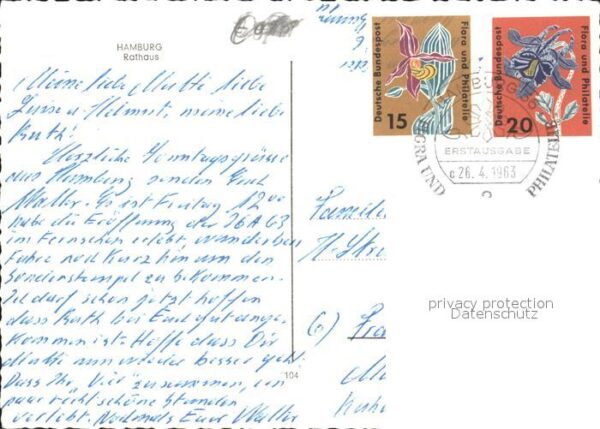 HAMBURG
Rathaus
Meine liebe Mutti liebe
Luise u Helmut, meine liebe
Ruth!
Herzliche Sonntagsgrüsse
aus Hamburg senden Euch
Walter. Es ist Freitag 12 00
habe die Eröffnung der IGA 63
im Fernsehen erlebt, wunderbar
Fahre noch kurz hin um den
Sonderstempel zu bekommen.
Ich darf schon jetzt hoffen
dass Ruth bei Euch gut ange-
kommen ist. Hoffe dass Dir
Mutti nun wieder besser geht
Dass Ihr "Vier" zusammen, ein
paar recht schöne Stunden
verlebt. Nochmals Euer Walter
104
Deutsche Bundespost
Flora und Philatelie
15
Deutsche Bundespost
Flora und Philatelie
20
ERSTAUSGABE
c 26. 4. 1963
c
FLORA UND
PHILATELIE
Familie
privacy protection
Datenschutz